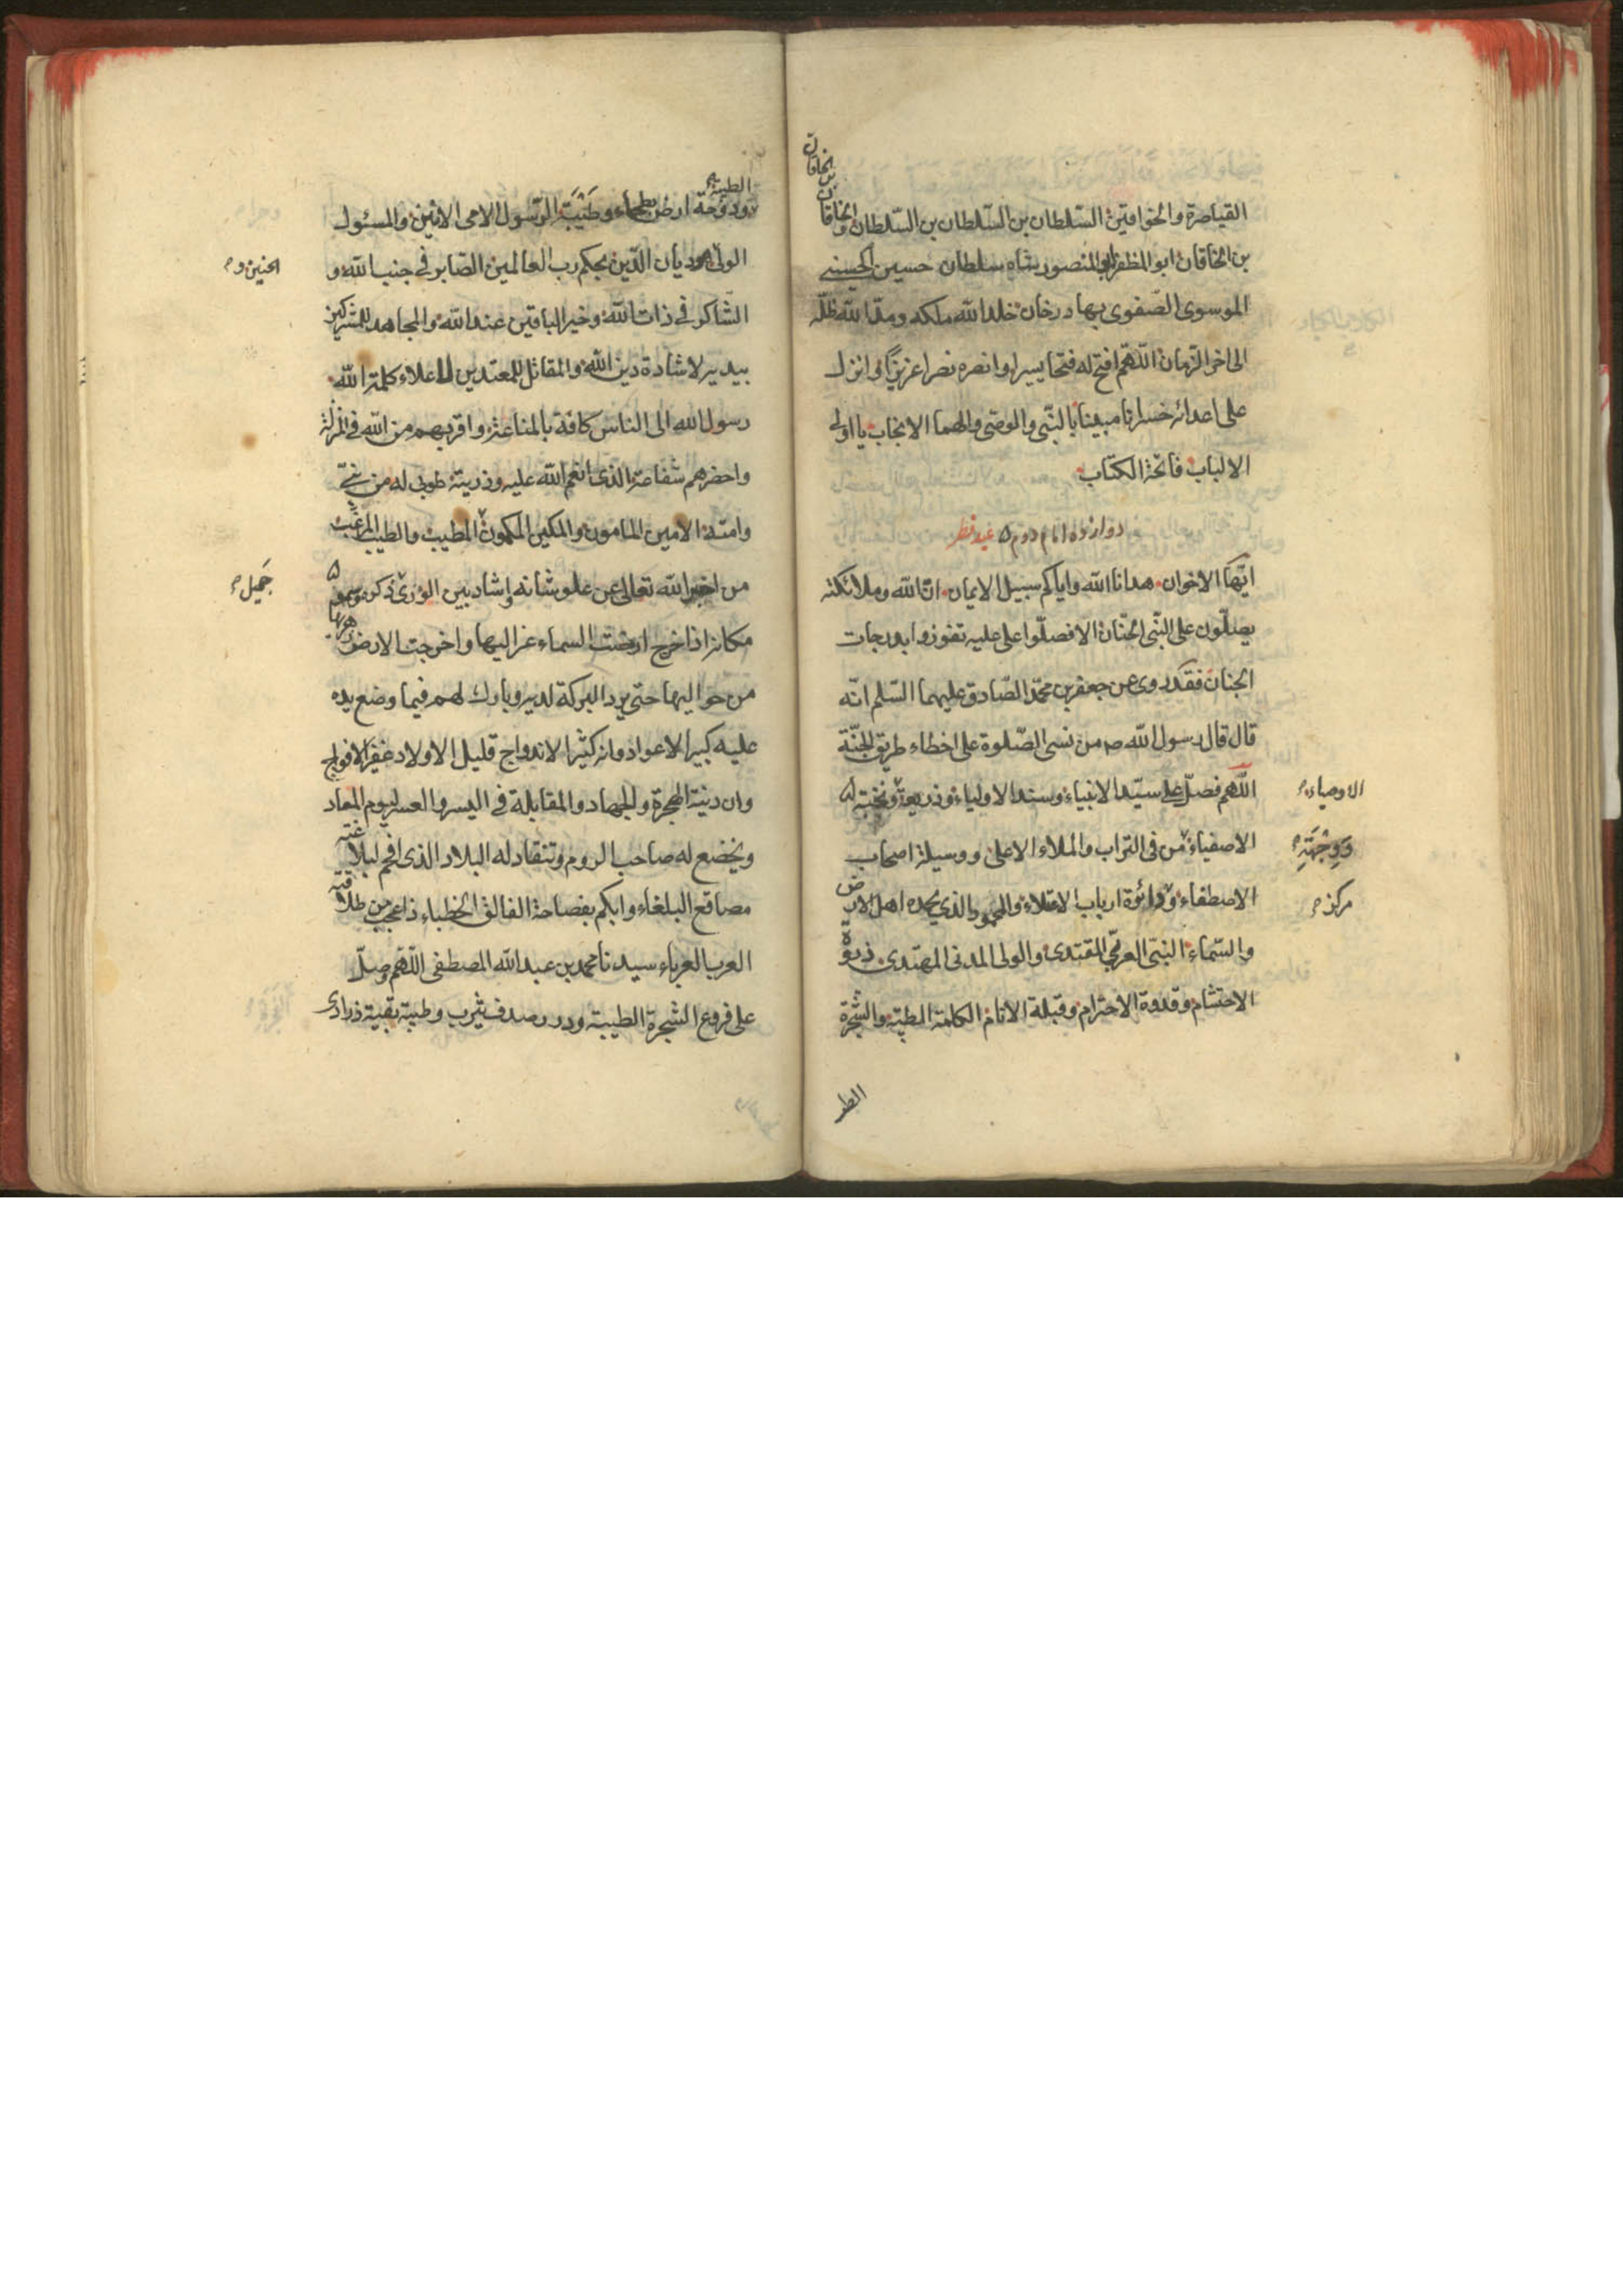 القياصرة والخواقين السّلطان بن السّلطان بن السّلطان والخاقان بن الخاقان
بن الخاقان ابو المظفر ابو المنصور شاه سلطان حسين الحسيني
الموسوى الصّفوى بهادرخان خلد الله ملكه ومدّ الله ظلّه
الى اخر الزمان اللّهم افتح له فتحا يسيرا وانصره نصرا عزيزا وانزل
على اعدائه خسرانا مبينا بالنّبى والوصى والهما الانجاب يا اولى
الالباب فاتحة الكتاب
دوازده امام دوم ۵ عيد فطر
ايّها الاخوان هدانا الله واياكم سبيل الايمان انّ الله وملائكته
يصلّون على النّبى الحنان الا فصلّوا على عليه تفوزوا بدرجات
الجنان فقد روى عن جعفر بن محمّد الصّادق عليهما السّلم انّه
قال قال رسول الله ص من نسى الصّلوة على اخطاء طريق الجنّة
اللّهم فصلّ على سيّد الانبياء وسند الاولياء وذريعة ونخبة
الاوصياء
الاصفياء من فى التراب والملاء الاعلى ووسيلة اصحاب
ووجهة
الاصطفاء ودائرة ارباب الاعتلاء والمحمود الذي يحمده اهل الارض
مركز
والسّماء النبّى العربّى المقتدى والولى المدنى المهتدى ذروة
الاحتشام وقدوة الاحترام وقبلة الانام الكلمة الطيّبة والشّجرة
الطيبة
ودوحة ارض بطحاء وطيبة الرّسول الامى الامين والمسئول
الولى ديان الدّين بحكم ربّ العالمين الصّابر فى جنب الله و
الحنين و
الشّاكر فى ذات الله وخير الباقين عند الله والمجاهد للمشركين
بيديه لاشادة دين الله والمقاتل للمعتدين لاعلاء كلمة الله
رسول الله الى الناس كافة واقربهم من الله فى المنزلة
واحضرهم شفاعة الذى انعم الله عليه وذريته طوبى له من نبىّ
وامته الامين المامون والمكين المطيب والطيب
من اخبر الله تعالى عن علو شانه واشاد بين الورى ذكره وسمو
جميل
مكانه اذا خرج ارخت السماء عزاليها واخرجت الارض زهرتها
من حواليها حتى يرد البركة لديه وبارك لهم فيما وضع يده
عليه كبير الاعواد وانه كثير الازدواج قليل الاولاد غفير الافواج
وان دينه الهجرة والجهاد والمقابلة فى اليسر والعسر ليوم المعاد
ويخضع له صاحب الروم وتنقاد له البلاد الذى افحم ببلاغته
مصاقع البلغاء وابكم بفصاحة الفالق الخطباء ذا عجب من طلاقته
العرب العرباء سيدنا محمد بن عبد الله المصطفى اللّهم وصلّ
على فروع الشجرة الطيبة ودرر صدف يثرب وطيبة بقية ذرارى